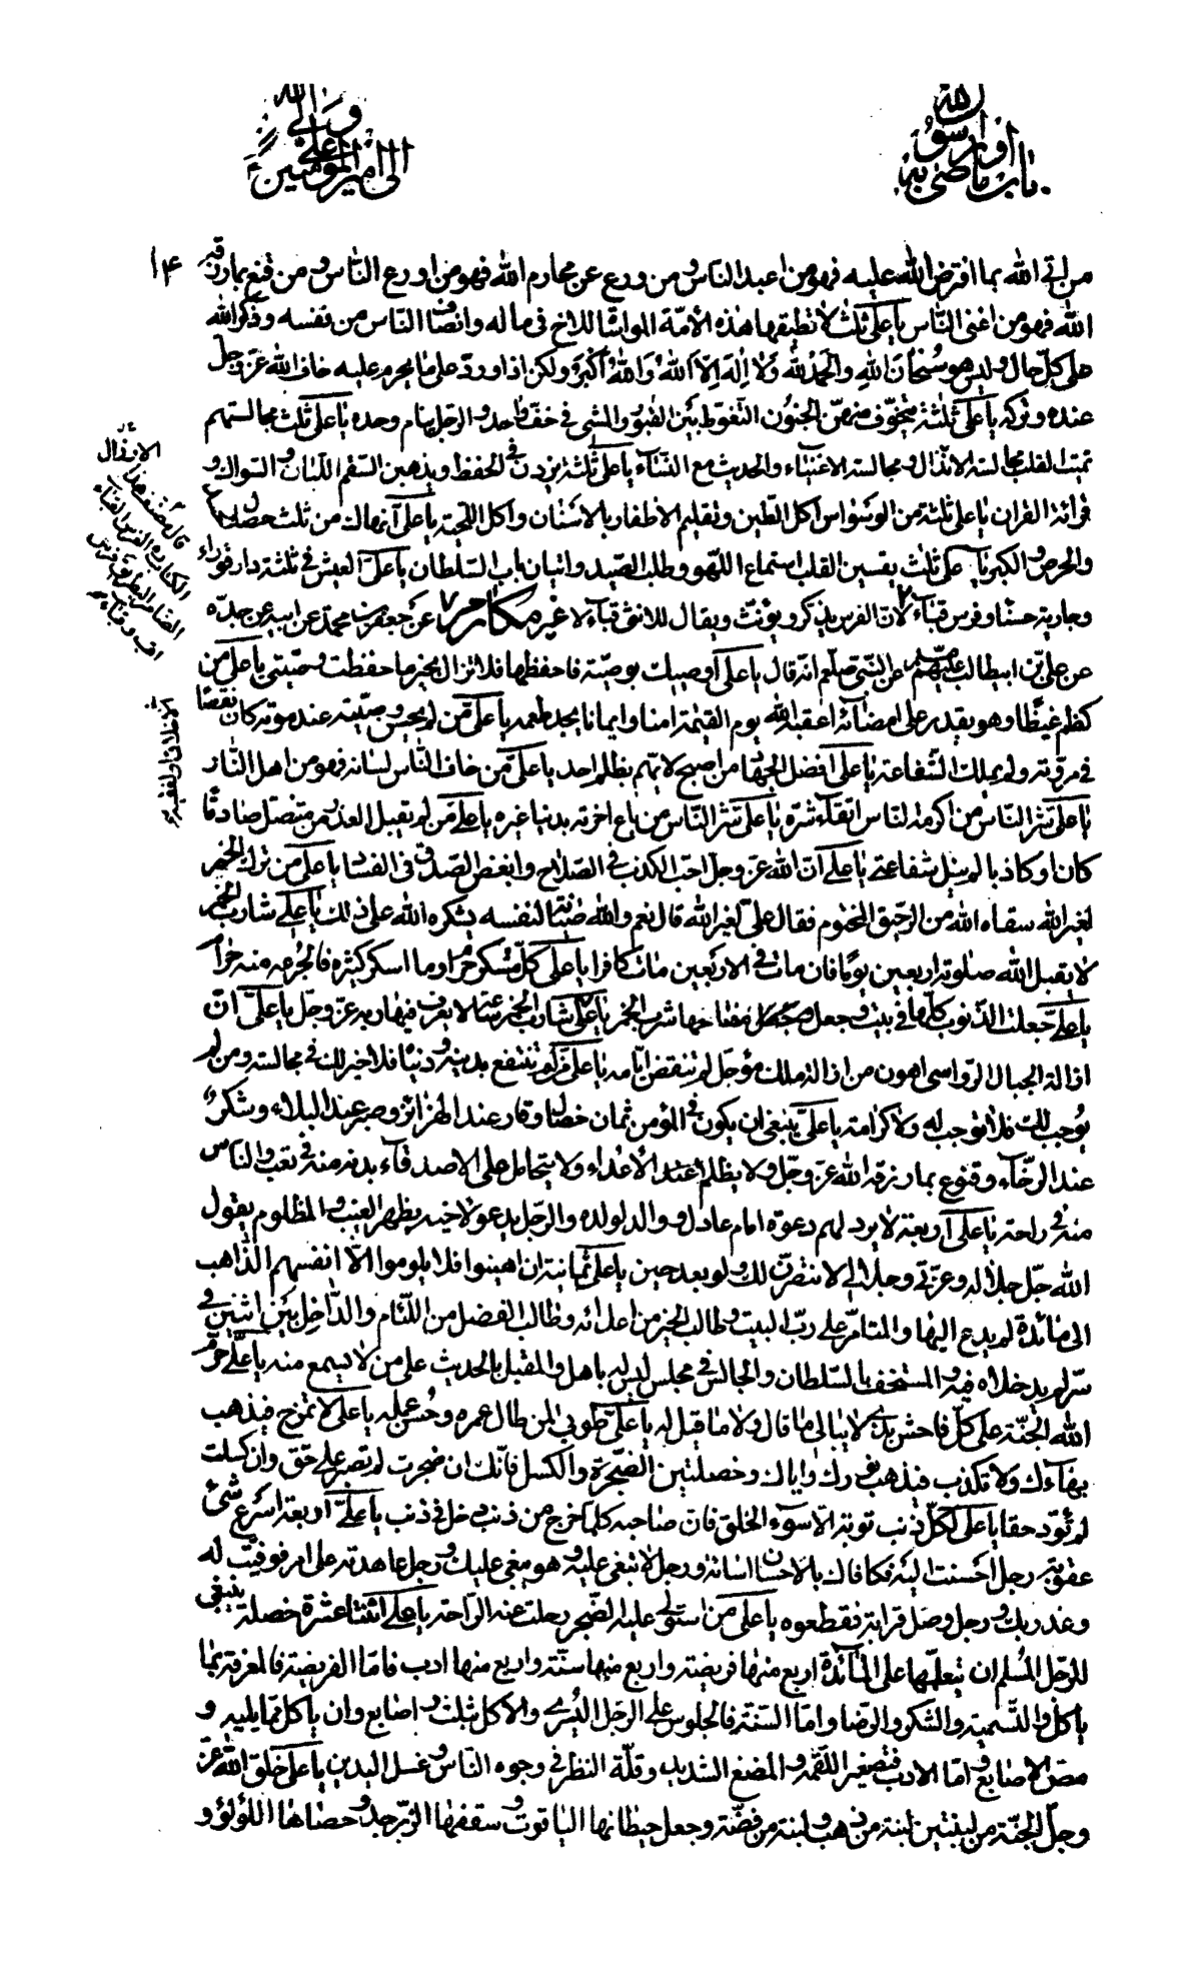 باب ما اوصى به رسول الله
الى امير المؤمنين على ولى الله
۱۴
من اتى الله بما افترض الله عليه فهو من اعبد الناس و من ورع عن محارم الله فهو من اورع الناس و من قنع بما رزقه
الله فهو من اغنى الناس يا على ثلث لا تطيقها هذه الامّة المواساة للاخ فى ماله وانصاف الناس من نفسه وذكر الله
على كلّ حال و ليس هو سُبْحٰانَ اللهِ والحَمْدُ لله وَلا اِلهَ اِلاّ اللهُ وَاللهُ اَكْبَر ولكن اذا ورد على ما يحرم عليه خاف الله عزّ وجل
عنده و تركه يا على ثلثة يتخوّف منهنّ الجنُون التّغوّط بَيْن القبُور والمشى فى خفّ واحد و الرجل ينام وحده يا على ثلث مجالستهم
تميت القلب مجالسة الانذال و مجالسة الاغنيٰاء والحديث مع النسٰاء يا على ثلثة يزدن فى الحفظ و يذهبن السقم اللبٰان و السّواك و
قرائة القران يا على ثلثة من الوسْوٰاس اكل الطين وتقليم الاظفار بالاسْنان و اكل اللحية يا على انهاك من ثلث خصال الحسد
والحرص و الكبر يا على ثلث يقسين القلب استماع اللهو و طلب الصّيد و اتيان باب السّلطان يا على العيش فى ثلثة دار قوراء
وجارية حسنٰا و فرس قبّاء لانّ الفرس يذكر و يؤنّث ويقال للانثى قبّاء لا غير مكارم عن جعفر بن محمّد عن ابيه عن جدّه
عن علىّ بن ابيطالب عليهم عن النّبى صلعم انّه قال يا على اوصيك بوصيّة فاحفظها فلا تزال بخير ما حفظت وصيّتى يا على من
كظم غيظًا و هو يقدر على امضائه اعقبه الله يوم القيٰمة امنا و ايمانا يجد طعمه يا على مَن لم يحسن وصيّته عند موته كان نقصًا
فى مروّته و لم يملك الشّفاعة يا على افضل الجهٰاد من اصبح لا يهمّ بظلم احد يا على مَن خاف النّاس لسٰانه فهو من اهل النّار
يا على شرّ النّاس من اكرمه الناس اتّقاء شرّه يا على شرّ النّاس من باع اخرته بدنيا غيره يا على مَن لم يقبل العذر من متنصّل صادقًا
كان او كاذبا لم ينل شفاعتى يا على انّ الله عزّ وجلّ احبّ الكذب فى الصّلاح و ابغض الصّدق فى الفسٰاد يا على من ترك الخمر
لغير الله سقاه الله من الرّحيق المختوم فقال علىّ لغير الله قال نعم و الله صٰيانة لنفسه يشكره الله على ذلك يا على شارب الخمر
لا يقبل الله صلوته اربعين يومًا فان مات فى الاربعين مات كافرا يا على كلّ مسكر حرام وما اسكر كثيره فالجُرعه منه حرام
يا على جعلت الذّنوب كلّها فى بيت و جعل مفتاحها شرب الخمر يا على شارب الخمر ساعة لا يعرف فيها ربه عزّ وجلّ يا على انّ
ازالة الجبال الرّواسى اهون من ازالة ملك مؤجّل لم تنقض ايّامه يا على مَن لم تنتفع بدينه و دنيٰاه فلا خير لك فى مجالسته و من لم
يُوجب لك فلا توجب له ولا كرامة يا على ينبغى ان يكون فى المؤمن ثمان خصٰال وقار عند الهزائز و صبر عند البلاء و شكر
عند الرّخآء وقنوع بما رزقه الله عزّ وجلّ و لا يظلم الاعْداء ولا يتحامل على الاصدقاء بدنه منه فى تعب و النّاس
منه فى راحة يا على اربعة لا يردّ لهم دعوة امام عادل و والد لولده و الرّجل يدعو لاخيه بظهر الغيب و المظلوم يقول
الله جلّ جلاله وعزّتى وجلالى لا نتصرنّ لك و لو بعد حين يا على ثمانية ان اهينوا فلا يلوموا الّا انفسهم الذّاهب
الى مٰائدة لم يدع اليها و المتأمّر على ربّ البيت و طالب الخير من اعدائه و طالب الفضل من اللّئام والدّاخِل بَيْن اثْنَيْن فى
سرّ لم يدخلاه فيه و المستخفّ بالسّلطان و الجالس فى مجلس ليس له باهل والمقبل بالحديث على من لا يسمع منه يا على حرّم
الله الجنّة على كلّ فاحش بذىّ لا يبالى ما قال ولا ما قيل له يا على طوبى لمن طال عمره وحُسن عمله يا على لا تمزح فيذهب
بهاءك ولا تكذب فيذهب نورك و اياك و خصلتين الضّجرة و الكسل فانّك ان ضجرت لم تصبر على حقّ و ان كسلت
لم تؤدّ حقا يا على لكلّ ذنب توبة الّا سوء الخلق فانّ صٰاحبه كلّما خرج من ذنب دخل فى ذنب يا على اربعة اسرع شئ
عقوبة رجل احسنت اليه فكافاك بالاحسان اساءة و رجل لا تبغى عليه و هو يبغى عليك و رجل عاهدته على امر فوفيت له
وغدر بك و رجل وصل قرابة فقطعوه يا على مَن استولى عليه الضّجر رحلت عنه الرّاحة يا على اثنتا عشرة خصلة ينبغى
للرّجل المُسلم ان يتعلّمها على المآئدة اربع منها فريضة و اربع منها سنّة و اربع منها ادب فامّا الفريضة فالمعرفة بمٰا
يأكل و التّسمية و الشكر و الرّضا و امّا السّنّة فالجلوس على الرجل اليُسرى والاكل بثلث اصٰابع و ان يأكل ممّا يليه و
مصّ الاصٰابع و امّا الادب فتصغير اللّقمة و المضغ الشديد وقلّة النظر فى وجوه النّاس و غسل اليدين يا على خلق الله عزّ
وجلّ الجنّة من لبنتين لبنة من ذهب و لبنة من فضّة وجعل حيطانها الياقوت و سقفها الزّبرجد و حصٰاها اللّؤلؤ و